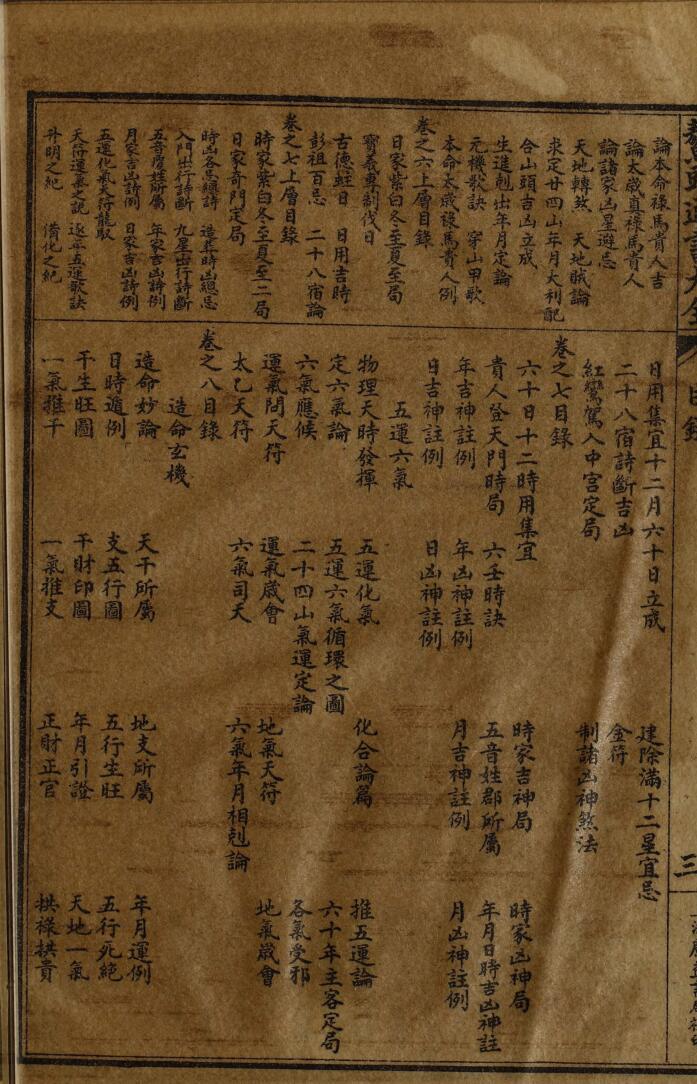 論本命祿馬貴人吉
論太歲真祿馬貴人
論諸家凶星避忌
天地轉煞 天地賊論
求定廿四山年月大利配
合山頭吉凶立成
生進剋出年月定論
元機歌訣 穿山甲歌
本命太歲祿馬貴人例
卷之六上層目錄
日家紫白冬至夏至局
寶義專制伐日
古德蛀日 日用吉時
彭祖百忌 二十八宿論
卷之七上層目錄
時家紫白冬至夏至二局
日家奇門定局
時凶各忌總詩 造葬時凶總忌
入門出行詩斷 九星出行詩斷
五音度姓所屬 年家吉凶詩例
月家吉凶詩例 日家吉凶詩例
五運化氣天符龍馭
天符運氣之說 逐年五運歌訣
升明之紀 備化之紀
日用集宜十二月六十日立成 建除滿十二星宜忌
二十八宿詩斷吉凶 金符
紅鸞駕入中宮定局 制諸凶神煞法
卷之七目錄
六十日十二時用集宜 時家吉神局 時家凶神局
貴人登天門時局 六壬時訣 五音姓郡所屬 年月日時吉凶神註
年吉神註例 年凶神註例 月吉神註例 月凶神註例
日吉神註例 日凶神註例
五運六氣
物理天時發揮 五運化氣 化合論篇 推五運論
定六氣論 五運六氣循環之圖 六十年主客定局
六氣應候 二十四山氣運定論 各氣受邪
運氣問天符 運氣歲會 地氣天符 地氣歲會
太乙天符 六氣司天 六氣年月相剋論
卷之八目錄
造命玄機
造命妙論 天干所屬 地支所屬 年月運例
日時遁例 支五行圖 五行生旺 五行死絕
干生旺圖 干財印圖 年月引證 天地一氣
一氣推干 一氣推支 正財正官 拱祿拱貴
目錄
三